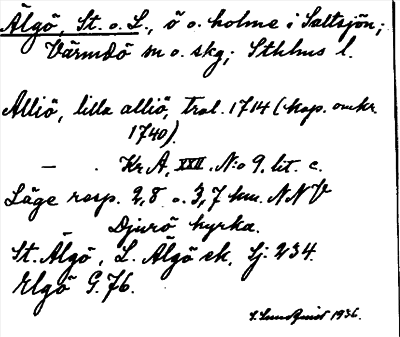 Älgö, St. o. L., ö o. holme i Saltsjön;
Värmdö sn o. skg; Sthlms l.
Alliö, lilla alliö, trol. 1714 (kop. omkr.
1740).
— . Kr A, XXII. N:o 9, lit. c.
Läge resp. 2,8 o. 3,7 km. NNV
Djurö kyrka.
St. Älgö, L. Älgö ek. Sj: 234.
Elgö G. 76.
S. Lundqvist 1936.